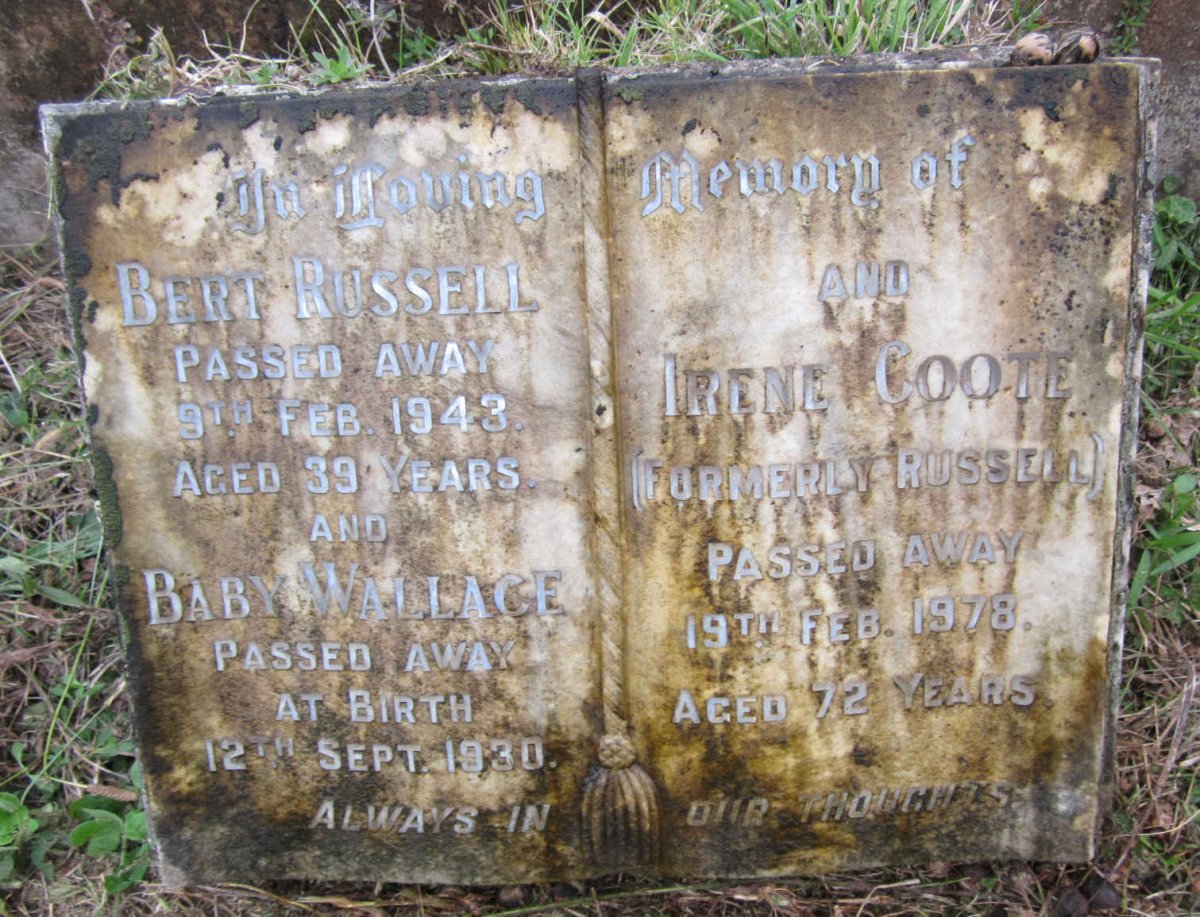 In Loving Memory of
BERT RUSSELL
PASSED AWAY
9TH FEB. 1943.
AGED 39 YEARS.
AND
BABY WALLACE
PASSED AWAY
AT BIRTH
12TH SEPT. 1930.
AND
IRENE COOTE
(FORMERLY RUSSELL)
PASSED AWAY
19TH FEB. 1978.
AGED 72 YEARS.
ALWAYS IN OUR THOUGHTS